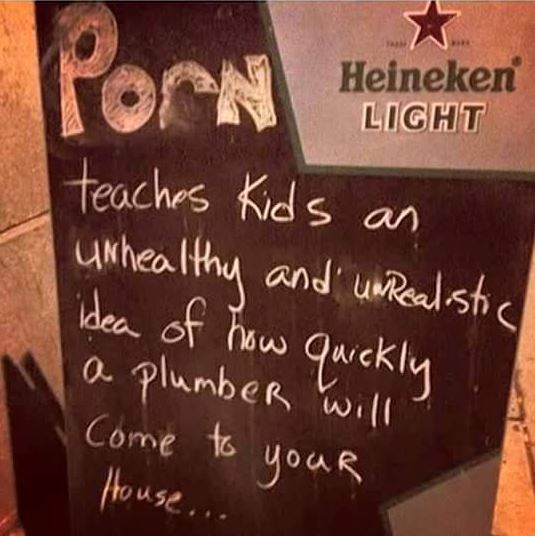 Porn
Heineken
LIGHT
teaches Kids an
unhealthy and unRealistic
idea of how quickly
a plumber will
Come to your
House...